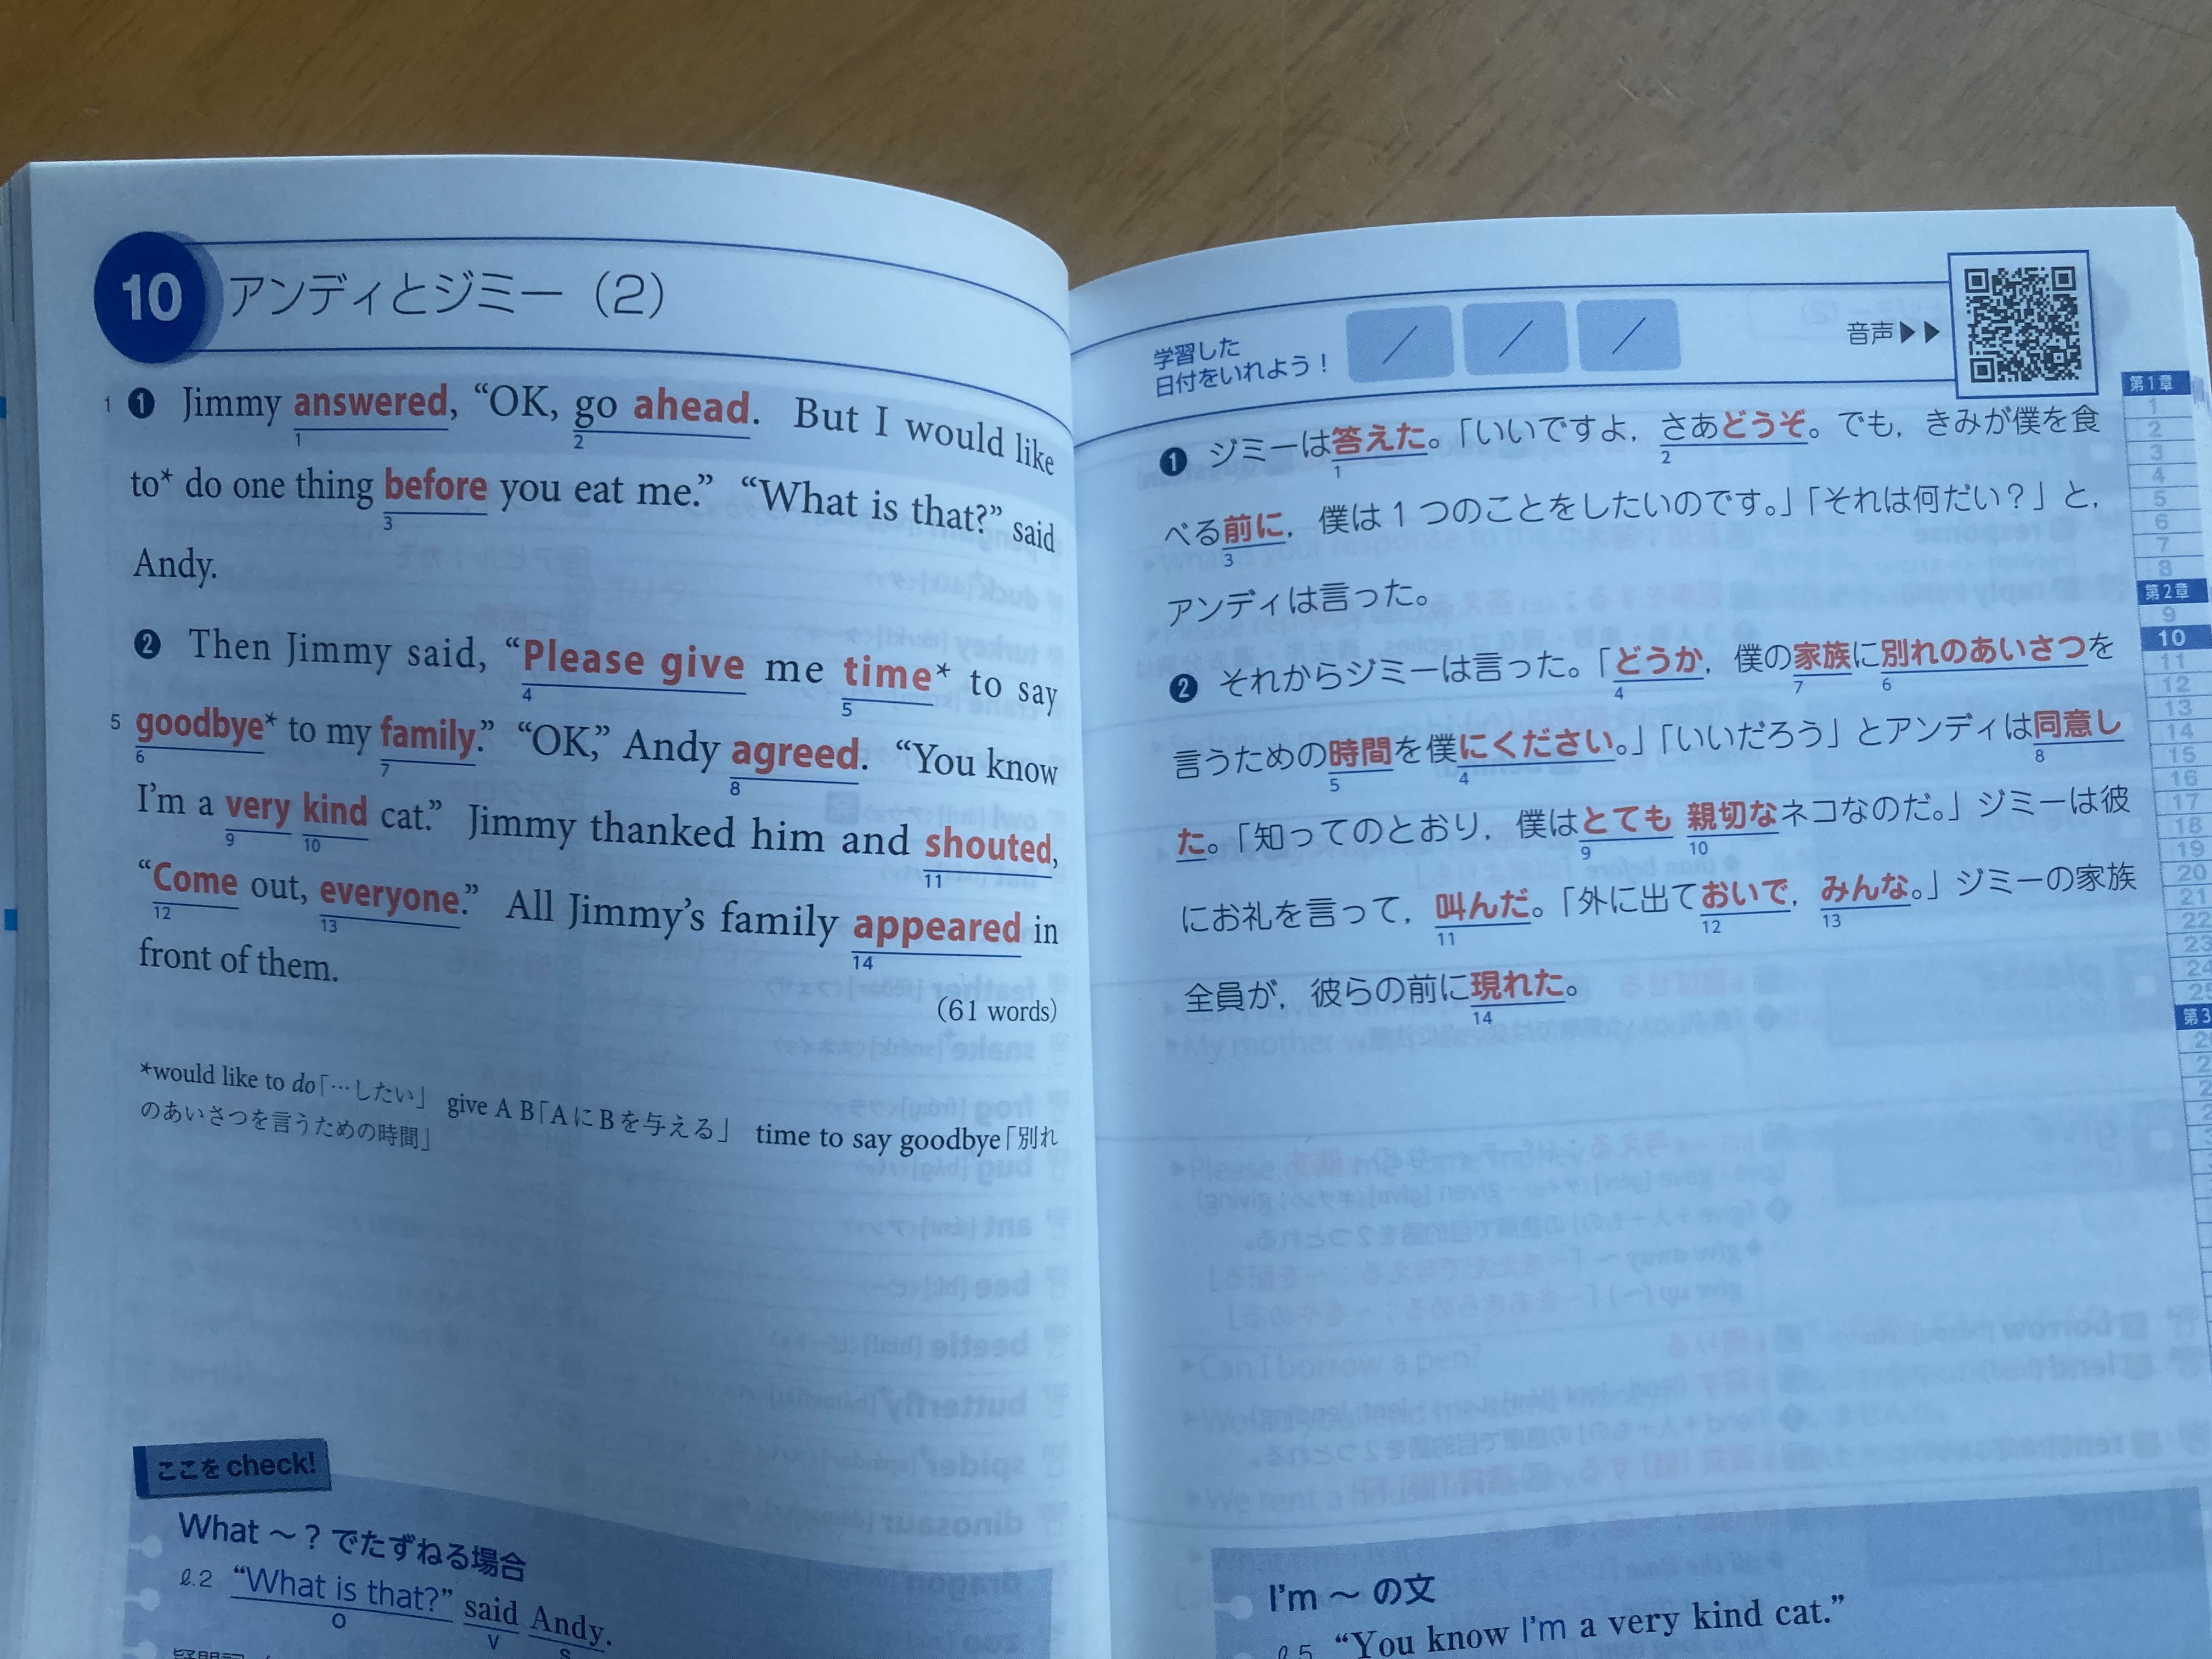 10 アンディとジミー（2）
1 ❶ Jimmy answered, “OK, go ahead. But I would like
1 2
to* do one thing before you eat me.” “What is that?” said
3
Andy.
❷ Then Jimmy said, “Please give me time* to say
4 5
5 goodbye* to my family.” “OK,” Andy agreed. “You know
6 7 8
I’m a very kind cat.” Jimmy thanked him and shouted,
9 10 11
“Come out, everyone.” All Jimmy’s family appeared in
12 13 14
front of them.
(61 words)
*would like to do「…したい」 give A B「AにBを与える」 time to say goodbye「別れ
のあいさつを言うための時間」
ここをcheck!
What ～？でたずねる場合
ℓ.2 “What is that?” said Andy.
O V S
学習した
日付をいれよう！
/ / /
音声▶▶
❶ ジミーは答えた。「いいですよ，さあどうぞ。でも，きみが僕を食
1 2
べる前に，僕は1つのことをしたいのです。」「それは何だい？」と，
3
アンディは言った。
❷ それからジミーは言った。「どうか，僕の家族に別れのあいさつを
4 7 6
言うための時間を僕にください。」「いいだろう」とアンディは同意し
5 4 8
た。「知ってのとおり，僕はとても親切なネコなのだ。」ジミーは彼
9 10
にお礼を言って，叫んだ。「外に出ておいで，みんな。」ジミーの家族
11 12 13
全員が，彼らの前に現れた。
14
I’m ～ の文
ℓ.5 “You know I’m a very kind cat.”
第1章
1
2
3
4
5
6
7
8
第2章
9
10
11
12
13
14
15
16
17
18
19
20
21
22
23
24
25
第3